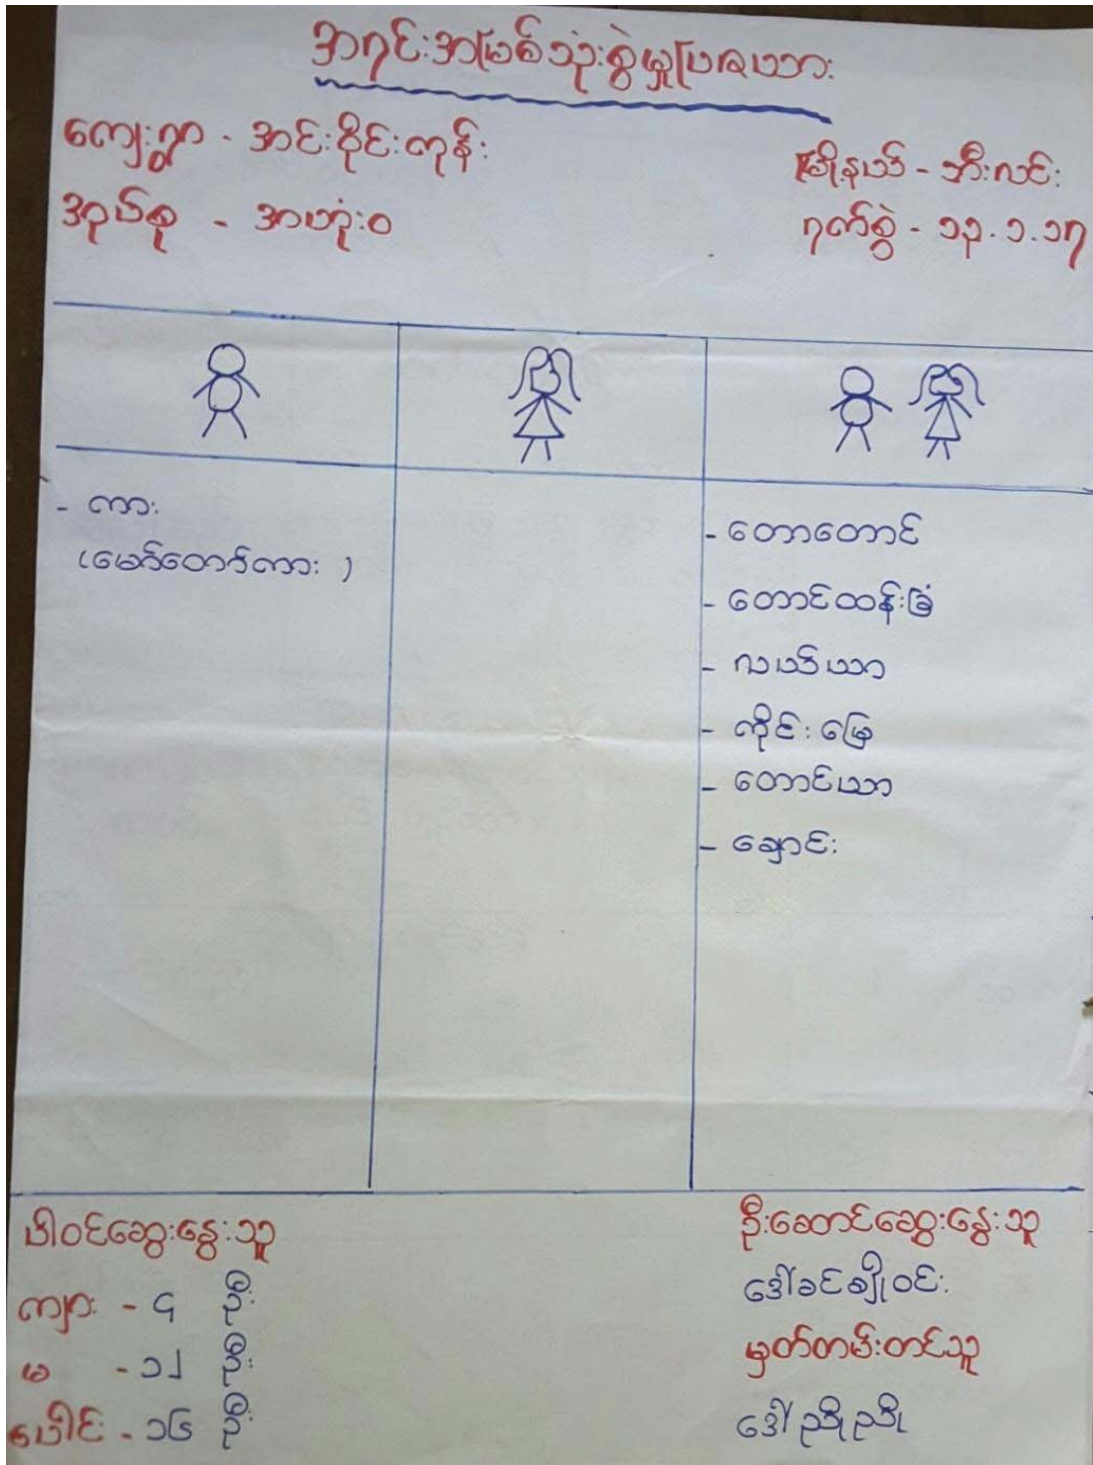 အရင်းအမြစ်သုံးစွဲမှုပြဇယား
ကျေးရွာ - အင်းဝိုင်းကုန်း
မြို့နယ် - ဘီးလင်း
အုပ်စု - အဟုံးဝ
ရက်စွဲ - ၁၃.၁.၁၇
- ကား
(မော်တော်ကား)
- တောတောင်
- တောင်ထန်းခြံ
- လယ်ယာ
- ကိုင်းမြေ
- တောင်ယာ
- ချောင်း
ပါဝင်ဆွေးနွေးသူ
ကျား - ၄ ဦး
မ - ၁၂ ဦး
ပေါင်း - ၁၆ ဦး
ဦးဆောင်ဆွေးနွေးသူ
ဒေါ်ခင်ချိုဝင်း
မှတ်တမ်းတင်သူ
ဒေါ်ညိုညို